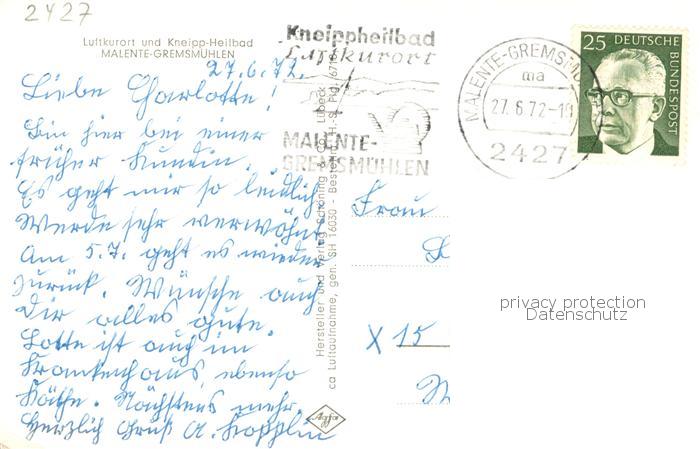 2427
Luftkurort und Kneipp-Heilbad
MALENTE-GREMSMÜHLEN
27.6.72.
Liebe Charlotte!
Bin hier bei einer
früher Kundin.
Es geht mir so leidlich
Werde sehr verwöhnt
Am 5.7. geht es wieder
zurück. Wünsche auch
Dir alles gute.
Lotte ist auch im
Krankenhaus, ebenso
Käthe. Nächstens mehr.
Herzlich Gruß A.
Hersteller und Verlag Schöning & Co., Lübeck
ca Luftaufnahme, gen. SH 16030 - Bestell
Agfa
Kneippheilbad
Luftkurort
MALENTE-
GREMSMÜHLEN
MALENTE-GREMSMÜ
ma
27.6.72-19
2427
25 DEUTSCHE
BUNDESPOST
Frau
X 15
privacy protection
Datenschutz